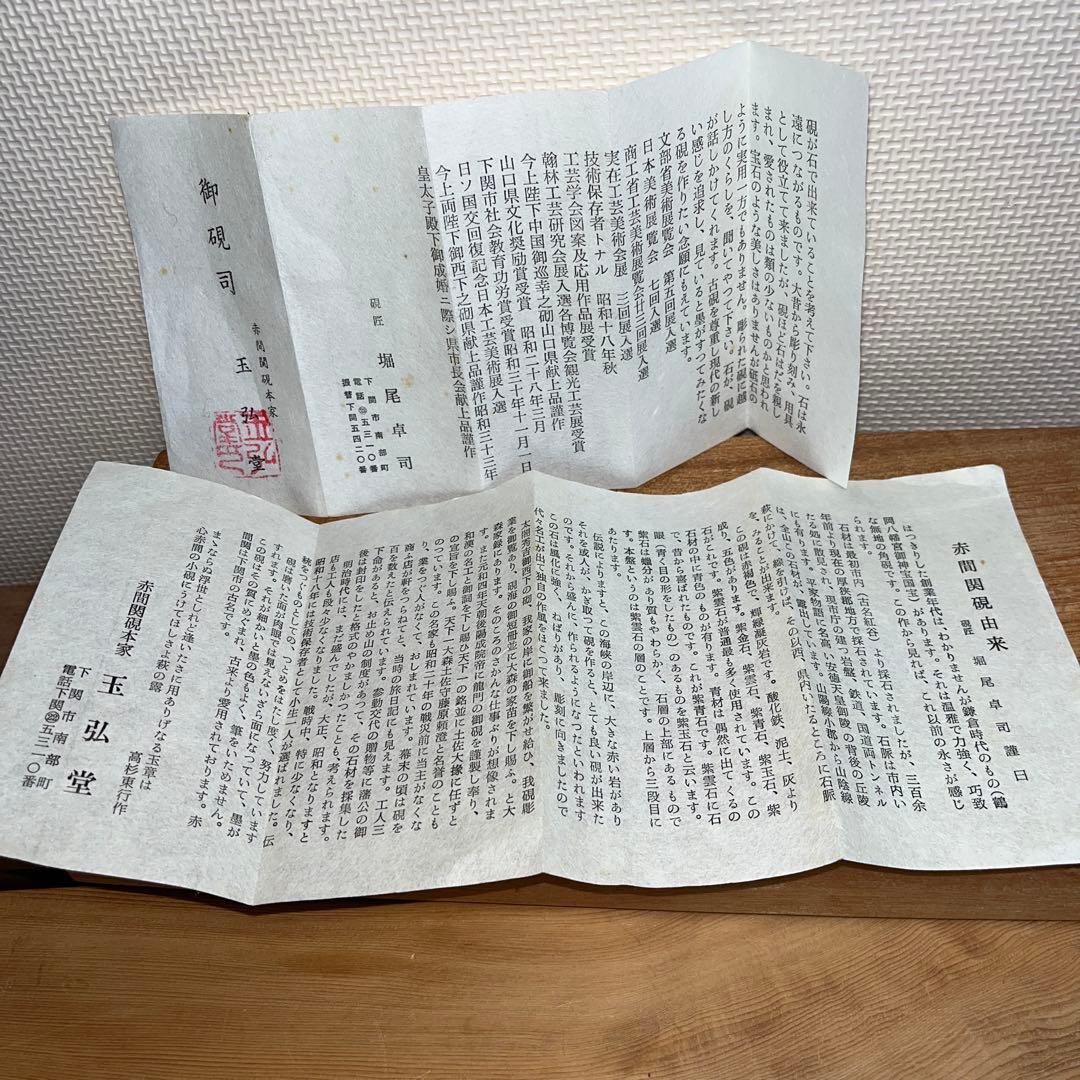 硯が石で出来ていることを考えて下さい。石は永
遠につながるものです。大昔から彫り刻み、用具
として役立てて来ましたが、硯ほど石はだを親し
まれ、愛されたものは類の少ないものかと思われ
ます。宝石のような美しさはありませんが砥石の
ように実用一方でもありません。彫られた硯に越
し方のくらしを、聞いてやつて下さい。石が、硯
が話しかけてくれます。古硯を尊重し現代の新し
い感じを追求し、見ていると墨がすつてみたくな
る硯を作りたい念願にもえています。
文部省美術展覧会 第五回展入選
日本美術展覧会 七回入選
商工省工芸美術展覧会廿三回展入選
実在工芸美術会展 三回展入選
技術保存者トナル 昭和十八年秋
工芸学会図案及応用作品展受賞
翰林工芸研究会展入選各博覧会観光工芸展受賞
今上陛下中国御巡幸之砌山口県献上品謹作
山口県文化奨励賞受賞 昭和二十八年三月
下関市社会教育功労賞受賞昭和三十年十一月一日
日ソ国交回復記念日本工芸美術展入選
今上両陛下御西下之砌県献上品謹作昭和三十三年
皇太子殿下御成婚ニ際シ県市長会献上品謹作
硯匠 堀尾卓司
下関市南部町
電話㉒五三一〇番
振替下関五四二〇番
御硯司
赤間関硯本家
玉弘堂
玉弘堂
赤間関硯由来
硯匠 堀尾卓司 謹日
はっきりした創業年代は、わかりませんが鎌倉時代のもの(鶴
岡八幡宮御神宝国宝)があります。それは温雅で力強く、巧致
な無地の角硯です。この作から見れば、これ以前の永さが感じ
られます。
石材は最初市内(古名紅谷)より採石されましたが、三百余
年前より現在の厚狭郡地方で採石されています。石脈は市内い
たる処に散見され、現市庁の建つ岩盤、鉄道、国道両トンネル
にも有ります。平家物語に名高い安徳天皇御陵の背後の丘陵
は、全山この石材が、露出しています。山陽線小郡から山陰線
萩にかけて、線を引けば、その以西、県内いたるところに石脈
を、みることが出来ます。
この硯は赤褐色で、輝緑凝灰岩です。酸化鉄、泥土、灰より
成り、五色があります。紫金石、紫雲石、紫青石、紫玉石、紫
石がこれです。紫雲石が普通最も多く使用されています。この
石材の中に青色のものが有ります。青材は偶然に出てくるの
で、昔から喜ばれたものです。これが紫青石です。紫雲石に石
眼(青く目の形をしたもの)のあるものを紫玉石と云います。
紫石は蠟分があり質もやわらかく、石層の上部にあるもので
す。本盤というのは紫雲石の層のことです。上層から三段目に
あたります。
伝説によりますと、この海峡の岸辺に、大きな赤い岩があり
それを或人が、かぎ取つて硯を作ると、とても良い硯が出来た
のです。それから盛んに、作られるようになつたといわれます
この石は風化に強く、ねばりがあり、彫刻に向きましたので
代々名工が出て独自の作風をほこつて来ました。
太閤秀吉御西下の砌、我家岸に御船を繋がせ給ひ、我硯彫
業を御覧あり、硯海の御短冊並に大森の家苗を下し賜ふ。と大
森家録にあります。そのころのさかんな仕事ぶりが想像されま
す。また元和四年天朝後陽成院帝に龍門の御硯を謹製し奉り、
和漢の名工と御図を下し賜ひ天下一の銘並に土佐大掾に任ずと
の宣旨を下し賜ふ。天下一大森土佐守藤原頼澄と名誉のことも
のつています。この名家も昭和二十年の戦災前に当主がなくな
り、業をつぐ人がなくて、おしまれています。幕末の頃は硯を
商う店が軒をつらねてと、当時の旅日誌にも見えます。工人三
百を数えたと伝えられています。参勤交代の贈物等に藩公の御
下命があると、お止め山の制度があつて、その石材を採集した
後は封印をしたと格式のやかましかつたことも、考えられます。
明治時代には、まだ盛んでしたが、大正、昭和となりますと
店も工人も段々少なくなりました。戦時中、特に少なくなり、
昭和十八年には技術保存者として小生一人が選ばれました。伝
統をつぐものとしての、つとめをはたし度く、努力しています
硯は磨いた面が肉眼では見えないざら面になつていて、墨が
すれます。それが細かいと墨の色もよく、筆をいためません。
この硯はその質にめぐまれ、古来より愛用されております。赤
間関は下関市の古名です。
まゝならぬ浮世としれど逢いたさに用ありげなる玉章は
心赤間の小硯にうけてほしさよ萩の露
高杉東行作
赤間関硯本家 玉弘堂
下関市南部町
電話下関㉒五三一〇番